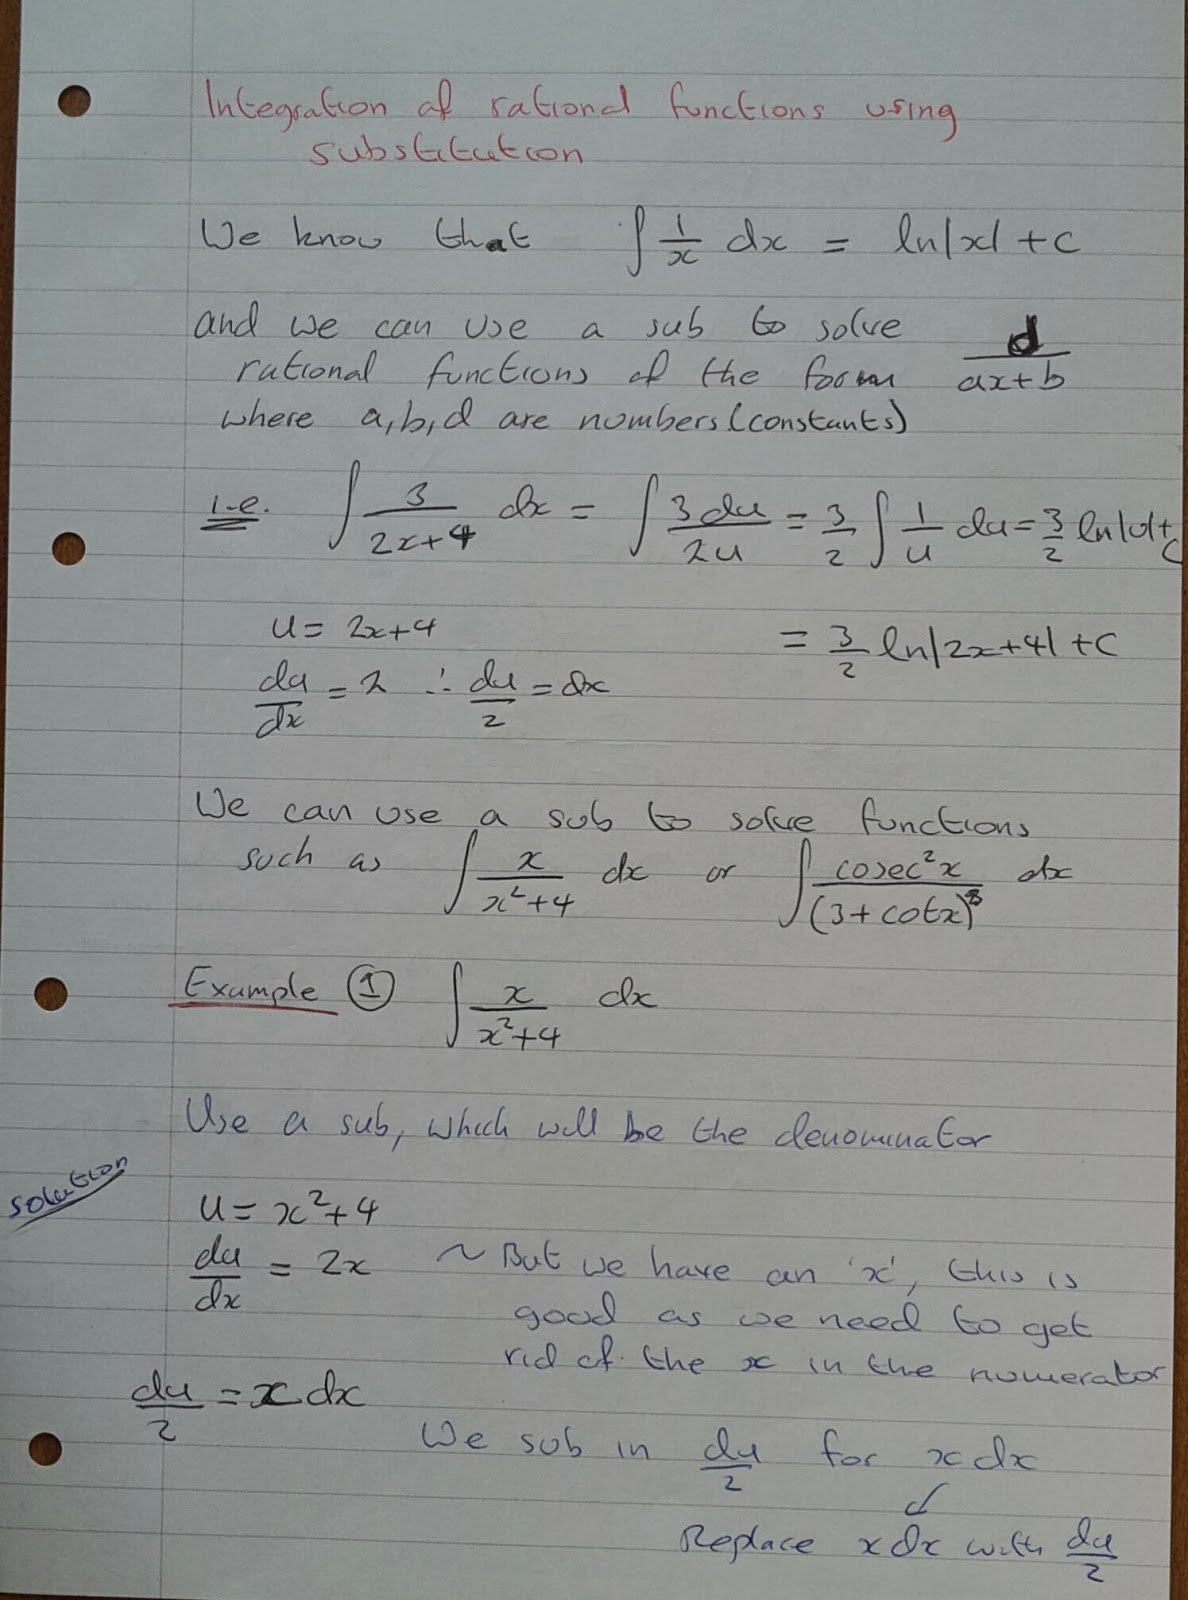 Integration of rational functions using
substitution
We know that ∫ 1/x dx = ln|x| + c
and we can use a sub to solve
rational functions of the form d/(ax+b)
where a,b,d are numbers (constants)
i.e. ∫ 3/(2x+4) dx = ∫ 3du/2u = 3/2 ∫ 1/u du = 3/2 ln|u| + c
u = 2x+4
= 3/2 ln|2x+4| + c
du/dx = 2 ∴ du/2 = dx
We can use a sub to solve functions
such as ∫ x/(x²+4) dx or ∫ cosec²x/(3+cotx)³ dx
Example ① ∫ x/(x²+4) dx
Use a sub, which will be the denominator
solution
u = x²+4
du/dx = 2x ~ But we have an 'x', this is
good as we need to get
rid of the x in the numerator
du/2 = x dx
We sub in du/2 for x dx
Replace x dx with du/2